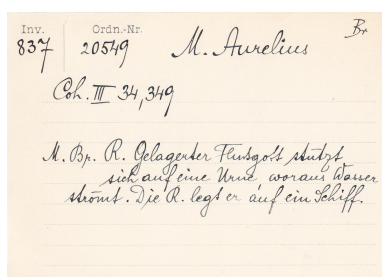 Inv. Ordn.-Nr. Br
837 20549 M. Aurelius
Coh. III 34,349
M. Br. R. Gelagerter Flußgott stützt
sich auf eine Urne woraus Wasser
strömt. Die R. legt er auf ein Schiff.